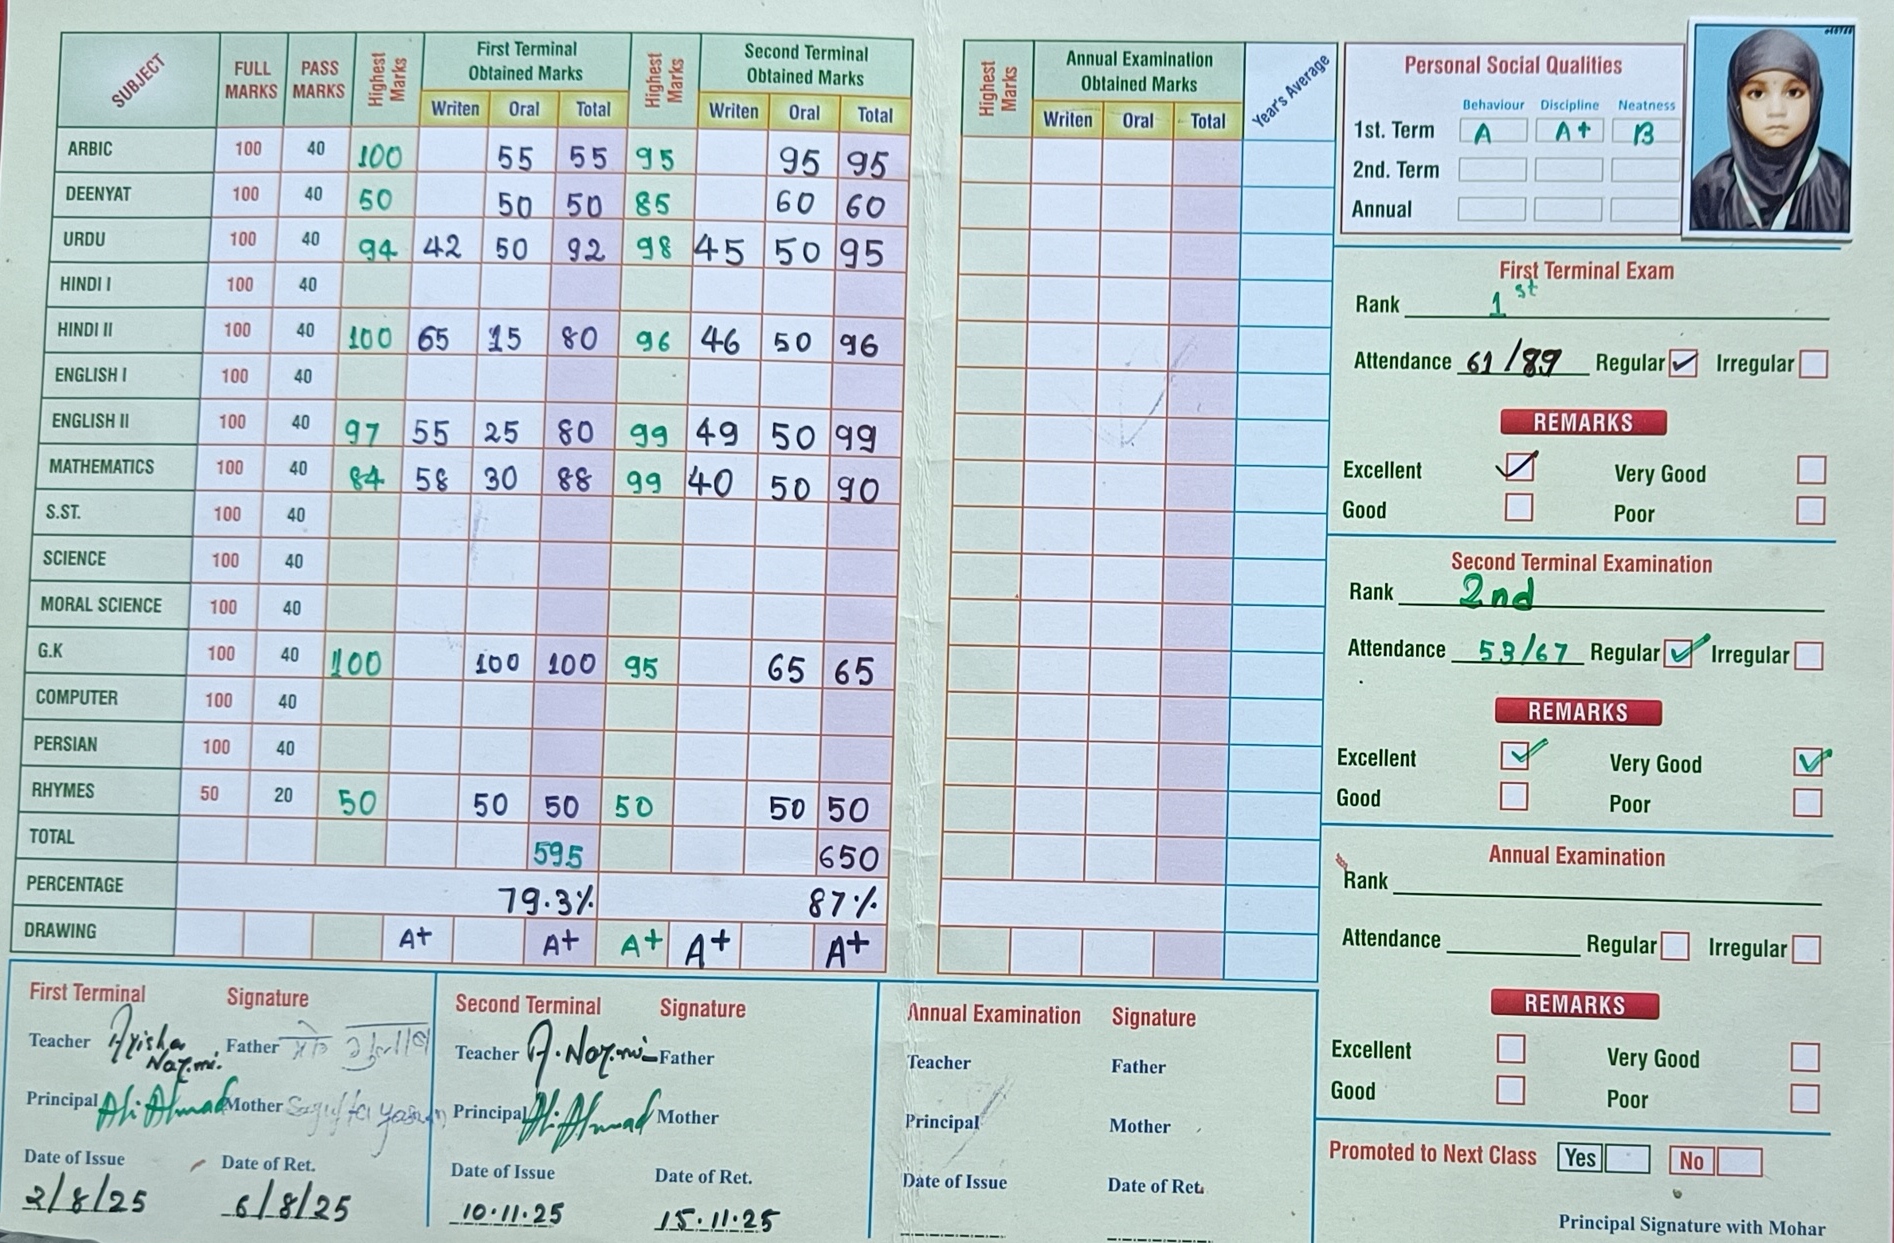 SUBJECT FULL MARKS PASS MARKS Highest Marks First Terminal Obtained Marks Highest Marks Second Terminal Obtained Marks
Writen Oral Total Writen Oral Total
ARBIC 100 40 100 55 55 95 95 95
DEENYAT 100 40 50 50 50 85 60 60
URDU 100 40 94 42 50 92 98 45 50 95
HINDI I 100 40
HINDI II 100 40 100 65 15 80 96 46 50 96
ENGLISH I 100 40
ENGLISH II 100 40 97 55 25 80 99 49 50 99
MATHEMATICS 100 40 84 58 30 88 99 40 50 90
S.ST. 100 40
SCIENCE 100 40
MORAL SCIENCE 100 40
G.K 100 40 100 100 100 95 65 65
COMPUTER 100 40
PERSIAN 100 40
RHYMES 50 20 50 50 50 50 50 50
TOTAL 595 650
PERCENTAGE 79.3% 87%
DRAWING A+ A+ A+ A+ A+
Highest Marks Annual Examination Obtained Marks Year's Average
Writen Oral Total
Personal Social Qualities
Behaviour Discipline Neatness
1st. Term A A+ B
2nd. Term
Annual
First Terminal Exam
Rank 1st
Attendance 61/89 Regular Irregular
REMARKS
Excellent Very Good
Good Poor
Second Terminal Examination
Rank 2nd
Attendance 53/67 Regular Irregular
REMARKS
Excellent Very Good
Good Poor
Annual Examination
Rank
Attendance Regular Irregular
REMARKS
Excellent Very Good
Good Poor
Promoted to Next Class Yes No
Principal Signature with Mohar
First Terminal Signature
Teacher Ayisha Nazmi. Father
Principal Ali Ahmad Mother
Date of Issue Date of Ret.
2/8/25 6/8/25
Second Terminal Signature
Teacher A. Nazmi Father
Principal Ali Ahmad Mother
Date of Issue Date of Ret.
10.11.25 15.11.25
Annual Examination Signature
Teacher Father
Principal Mother
Date of Issue Date of Ret.